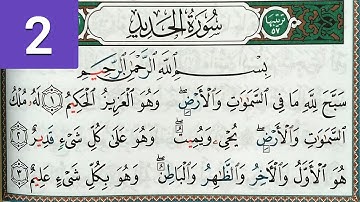 2
ترتيبها ٥٧
سُورَةُ الْحَدِيدِ
بِسْمِ اللَّهِ الرَّحْمَٰنِ الرَّحِيمِ
سَبَّحَ لِلَّهِ مَا فِي السَّمَاوَاتِ وَالْأَرْضِ ۖ وَهُوَ الْعَزِيزُ الْحَكِيمُ ﴿١﴾ لَهُ مُلْكُ
السَّمَاوَاتِ وَالْأَرْضِ ۖ يُحْيِي وَيُمِيتُ ۖ وَهُوَ عَلَىٰ كُلِّ شَيْءٍ قَدِيرٌ ﴿٢﴾
هُوَ الْأَوَّلُ وَالْآخِرُ وَالظَّاهِرُ وَالْبَاطِنُ ۖ وَهُوَ بِكُلِّ شَيْءٍ عَلِيمٌ ﴿٣﴾